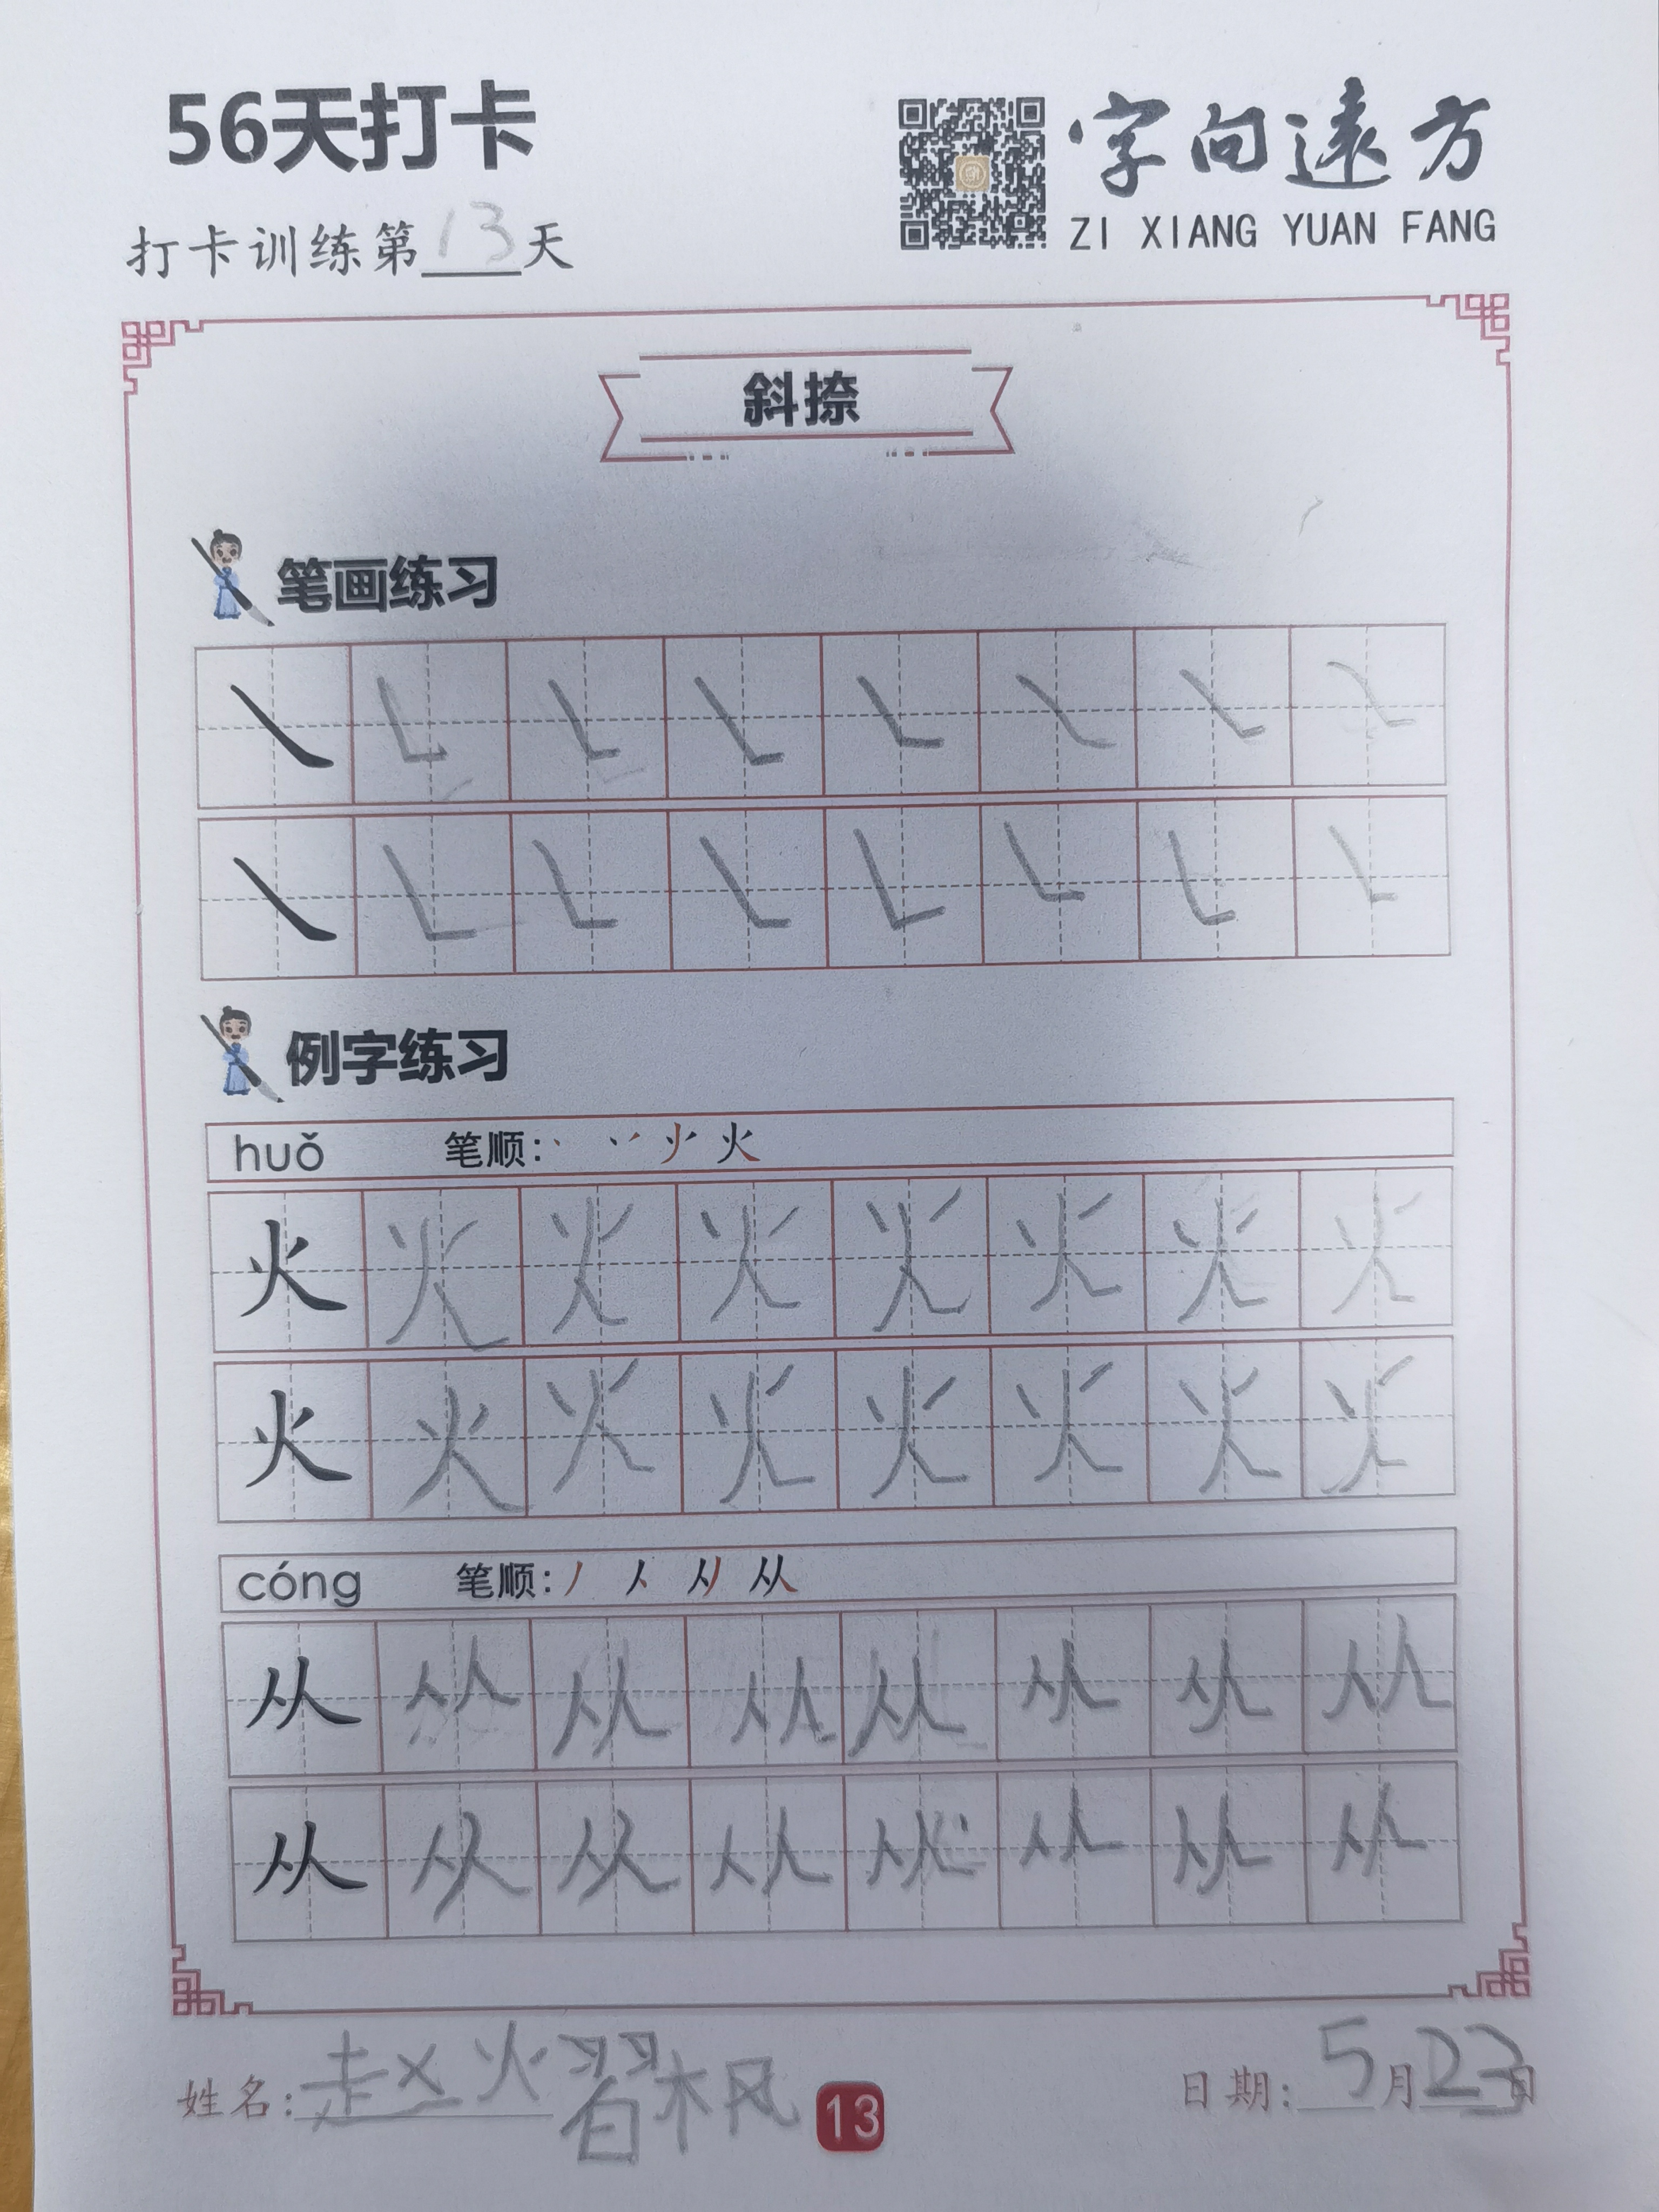 56天打卡
字向远方
ZI XIANG YUAN FANG
打卡训练第13天
斜捺
笔画练习
㇏ ㇏ ㇏ ㇏ ㇏ ㇏ ㇏ ㇏
㇏ ㇏ ㇏ ㇏ ㇏ ㇏ ㇏ ㇏
例字练习
huǒ 笔顺: 火
火 火 火 火 火 火 火 火
火 火 火 火 火 火 火 火
cóng 笔顺: 从
从 从 从 从 从 从 从 从
从 从 从 从 从 从 从 从
姓名: 赵 熠 枫
13
日期: 5月23日